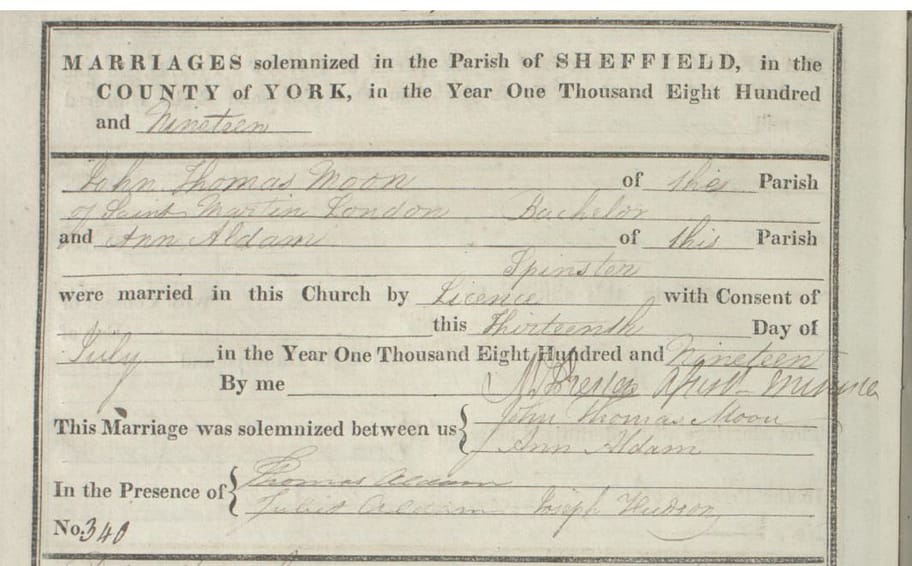 MARRIAGES solemnized in the Parish of SHEFFIELD, in the
COUNTY of YORK, in the Year One Thousand Eight Hundred
and Nineteen
John Thomas Moon of Parish
of Saint Martin London Bachelor
and Ann Aldam of this Parish
Spinster
were married in this Church by Licence with Consent of
this Thirteenth Day of
July in the Year One Thousand Eight Hundred and Nineteen
By me
This Marriage was solemnized between us { John Thomas Moon
Ann Aldam
In the Presence of { Thomas Aldam
Aldam Joseph Hudson
No. 340